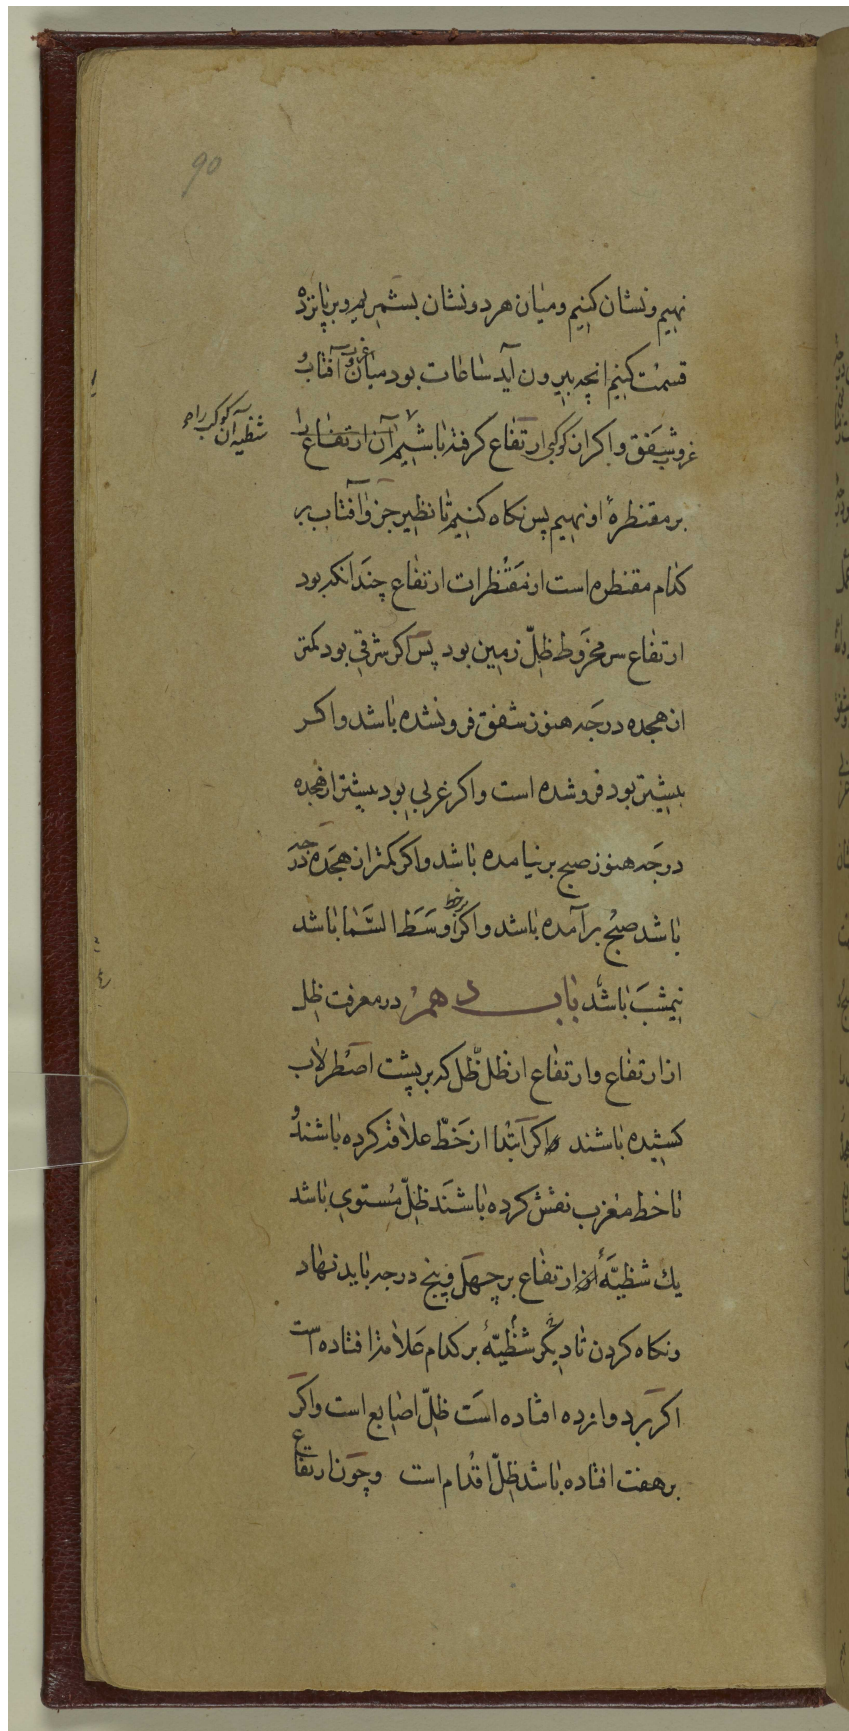 90
نهیم و نشان کنیم و میان هر دو نشان بشمریم و بر پانزده
قسمت کنیم انچه بیرون آید ساعات بود میان غروب آفتاب و
غروب شفق و اکر ان کوکبی ارتفاع کرفته باشیم آن ارتفاع را
شظیه آن کوکب را
بر مقنطرهٔ او نهیم پس نکاه کنیم تا نظیر جزو آفتاب بر
کدام مقنطره است از مقنظرات ارتفاع چندانکه بود
ارتفاع سر مخروط ظلّ زمین بود پس اکر شرقی بود کمتر
از هجده درجه هنوز شفق فرو نشده باشد و اکر
بیشتر بود فرو شده است و اکر غربی بود بیشتر از هجده
درجه هنوز صبح بر نیامده باشد و اکر کمتر از هجده درجه
باشد صبح برآمده باشد و اکر بر خط وسط السّما باشد
نیمشب باشد باب دهم در معرفت ظل
از ارتفاع و ارتفاع از ظل ظّل که بر پشت اصطرلاب
کشیده باشند اکر ابتدا از خطّ علاقه کرده باشند و
تا خط مغرب نقش کرده باشند ظلّ مستوی باشد
یك شظیّهٔ از ارتفاع بر چهل و پنج درجه باید نهاد
و نکاه کردن تا دیگر شظیّهٔ بر کدام علامة افتاده است
اکر بر دوازده افتاده است ظلّ اصابع است و اکر
بر هفت افتاده باشد ظلّ اقدام است و چون ارتفاع